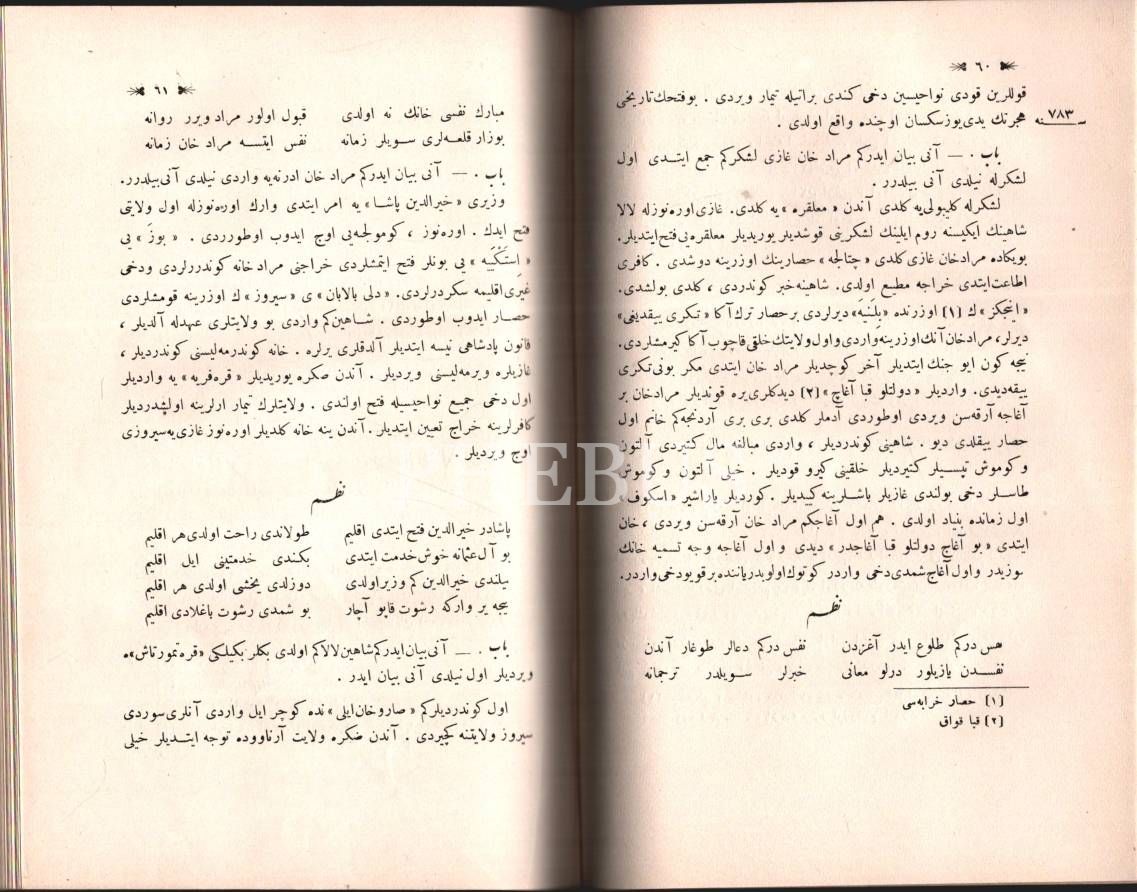 ٦٠
قوللرین قودی نواحیسین دخی کندی براتیله تیمار ویردی . بوفتحك تاریخی
٧٨٣
هجرتك یدی یوز سکسان اوچنده واقع اولدی .
باب . — آنی بیان ایدرکم مراد خان غازی لشکرکم جمع ایتدی اول
لشکرله نیلدی آنی بیلدرر .
لشکرله کلیبولی‌یه کلدی آندن « معلقره » یه کلدی . غازی اوره‌نوزله لالا
شاهینك ایکیسنه روم ایلینك لشکرینی قوشدیلر یوریدیلر معلقره‌یی فتح ایتدیلر.
بویکاده مراد خان غازی کلدی « چتالجه » حصارینك اوزرینه دوشدی . کافری
اطاعت ایتدی خراجه مطیع اولدی. شاهینه خبر کوندردی ، کلدی بولشدی.
« اینجکز » ك [١] اوزرنده « پلنیه » دیرلردی بر حصار ترك آکا « تکری ییقدیغی »
دیرلر، مراد خان آنك اوزرینه واردی و اول ولایتك خلقی قاچوب آکا کیرمشلردی.
نیجه کون ایو جنك ایتدیلر آخر کوچدیلر مراد خان ایتدی مکر بونی تکری
ییقه دیدی. واردیلر « دولتلو قبا آغاچ » [٢] دیدکلری یره قوندیلر مراد خان بر
آغاجه آرقه‌سن ویردی اوطوردی آدملر کلدی بری بری آردنجه کم خانم اول
حصار ییقلدی دیو . شاهینی کوندردیلر ، واردی مبالغه مال کتیردی آلتون
و کوموش تپسیلر کتیردیلر خلقینی کیرو قودیلر . خیلی آلتون و کوموش
طاسلر دخی بولندی غازیلر باشلرینه کییدیلر . کوردیلر یاراشیر « اسکوف »
اول زمانده بنیاد اولدی . هم اول آغاجکم مراد خان آرقه‌سن ویردی ، خان
ایتدی « بو آغاچ دولتلو قبا آغاجدر » دیدی و اول آغاجه وجه تسمیه خانك
سوزیدر و اول آغاچ شمدی دخی واردر کوتوك اولوبدر یاننده بر قویو دخی واردر.
نظم
هس درکم طلوع ایدر آغزدن نفس درکم دعالر طوغار آندن
نفسدن یازیلور درلو معانی خبرلر سویلدر ترجمانه
[١] حصار خرابه‌سی
[٢] قبا قواق
٦١
مبارك نفسی خانك نه اولدی قبول اولور مراد ویرر روانه
بوزار قلعه‌لری سویلر زمانه نفس ایتسه مراد خان زمانه
باب . — آنی بیان ایدرکم مراد خان ادرنه‌یه واردی نیلدی آنی بیلدرر.
وزیری « خیرالدین پاشا » یه امر ایتدی وارك اوره‌نوزله اول ولایتی
فتح ایدك . اوره‌نوز ، کوموجله‌یی اوج ایدوب اوطورردی . « بوز » یی
« اسکتیه » یی بونلر فتح ایتمشلردی خراجنی مراد خانه کوندررلردی و دخی
غیری اقلیمه سکردرلردی. « دلی بالابان » ی « سیروز » ك اوزرینه قومشلردی
حصار ایدوب اوطوردی . شاهین کم واردی بو ولایتلری عهدله آلدیلر ،
قانون پادشاهی نیسه ایتدیلر آلدقلری یرلره . خانه کوندرمه‌لیسنی کوندردیلر ،
غازیلره ویرمه‌لیسنی ویردیلر . آندن صکره یوریدیلر « قره‌فریه » یه واردیلر
اول دخی جمیع نواحیسیله فتح اولندی . ولایتلرك تیمار ارلرینه اولشدردیلر
کافرلرینه خراج تعیین ایتدیلر . آندن ینه خانه کلدیلر اوره‌نوز غازی‌یه سیروزی
اوج ویردیلر .
نظم
پاشادر خیرالدین فتح ایتدی اقلیم طولاندی راحت اولدی هر اقلیم
بو آل عثمانه خوش خدمت ایتدی بکندی خدمتینی ایل اقلیم
بیلندی خیرالدین کم وزیر اولدی دوزلدی یخشی اولدی هر اقلیم
نیجه یر وارکه رشوت قاپو آچار بو شمدی رشوت باغلادی اقلیم
باب . — آنی بیان ایدرکم شاهین لالا کم اولدی بکلر بکیلکی « قره تمورتاش » ه
ویردیلر اول نیلدی آنی بیان ایدر .
اول کوندردیلرکم « صاروخان ایلی » نده کوچر ایل واردی آنلری سوردی
سیروز ولایتنه کچیردی . آندن صکره ولایت آرناووده توجه ایتدیلر خیلی